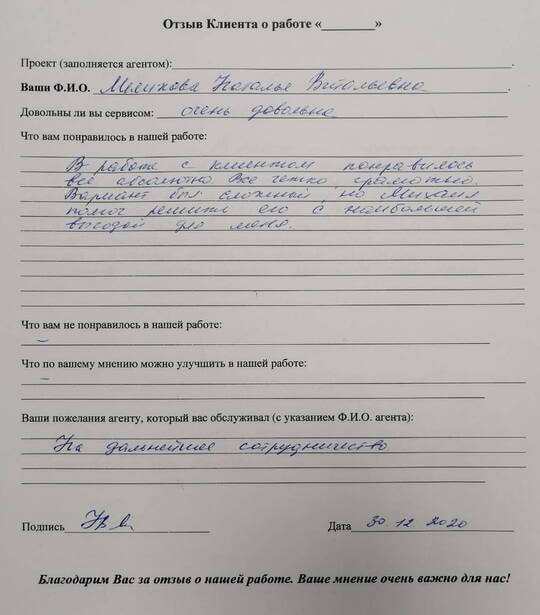 Отзыв Клиента о работе «________»
Проект (заполняется агентом):
Ваши Ф.И.О. Наталья Витальевна
Довольны ли вы сервисом: очень довольна
Что вам понравилось в нашей работе:
В работе с клиентом понравилось
всё абсолютно. Все четко грамотно.
Вариант был сложный, но Михаил
помог решить его с наибольшей
выгодой для меня.
Что вам не понравилось в нашей работе:
–
Что по вашему мнению можно улучшить в нашей работе:
–
Ваши пожелания агенту, который вас обслуживал (с указанием Ф.И.О. агента):
На дальнейшее сотрудничество
Подпись Дата 30.12.2020
Благодарим Вас за отзыв о нашей работе. Ваше мнение очень важно для нас!